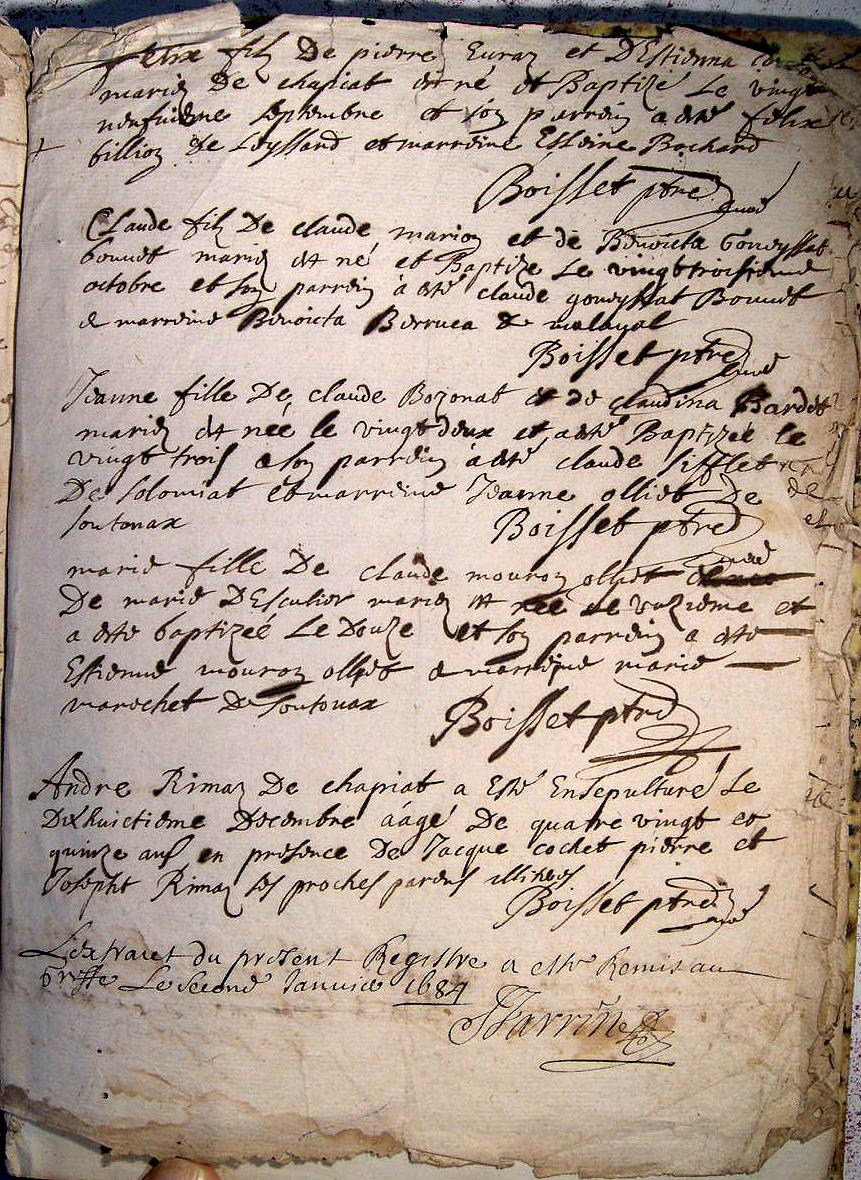 felix filz De pierre Euraz et D'Estienna
mariez De chapiat est né et Baptizé Le vingt
neufuieme septembre et son parrein a esté felix
billion de Leyssard et marreine Estienne Bochard
Boisset ptre curé
CLaude filz De claude marion et de Benoicte Gouyssat
bouuet mariez est né et Baptize Le vingttroisieme
octobre et son parrein à esté claude gouyssat Bouuet
& marreine Benoicta Berruca de malaual
Boisset ptre curé
Jeanne fille De claude Bozonat et de claudina Bardet
mariez est née le vingtdeux et a esté Baptizée le
vingt trois & son parrein à esté claude sifflet
De solomiat et marreine Jeanne olliet De
soutonax
Boisset ptre curé
marie fille De claude mouron olliet
De marie D'Esculier mariez est née le unzieme et
a esté baptizeé Le Douze et son parrein a esté
Estienne mouron olliet & marreine marie
marechet De soutonax
Boisset ptre
Andre Rimaz De chapiat a Esté Ensepulturé Le
Dixhuictieme Decembre áagé De quatre vingt et
quinze ans en présence De Jacque cochet pierre et
Josepht Rimaz ses proches parens illiteres
Boisset ptre curé
Lextraict du present Registre a este Remis au
Greffe Le Second Januier 1684